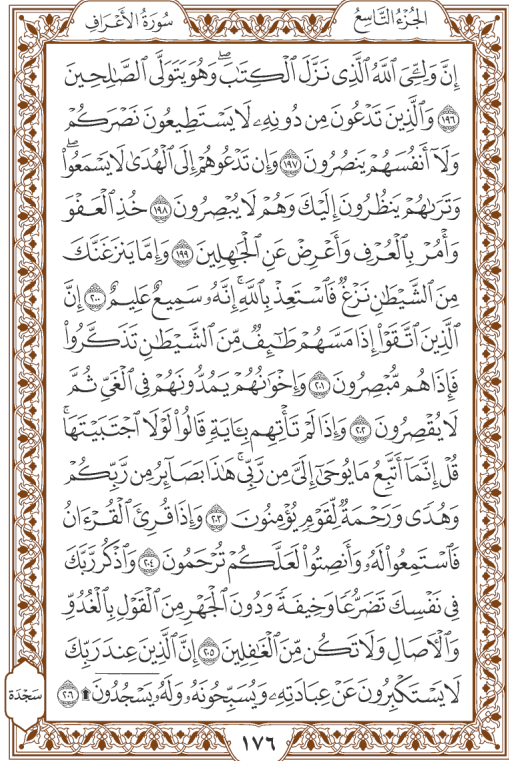 الجُزْءُ التَّاسِعُ
سُورَةُ الأَعْرَافِ
إِنَّ وَلِـِّۧيَ ٱللَّهُ ٱلَّذِي نَزَّلَ ٱلۡكِتَٰبَۖ وَهُوَ يَتَوَلَّى ٱلصَّٰلِحِينَ
١٩٦ وَٱلَّذِينَ تَدۡعُونَ مِن دُونِهِۦ لَا يَسۡتَطِيعُونَ نَصۡرَكُمۡ
وَلَآ أَنفُسَهُمۡ يَنصُرُونَ ١٩٧ وَإِن تَدۡعُوهُمۡ إِلَى ٱلۡهُدَىٰ لَا يَسۡمَعُواْۖ
وَتَرَىٰهُمۡ يَنظُرُونَ إِلَيۡكَ وَهُمۡ لَا يُبۡصِرُونَ ١٩٨ خُذِ ٱلۡعَفۡوَ
وَأۡمُرۡ بِٱلۡعُرۡفِ وَأَعۡرِضۡ عَنِ ٱلۡجَٰهِلِينَ ١٩٩ وَإِمَّا يَنزَغَنَّكَ
مِنَ ٱلشَّيۡطَٰنِ نَزۡغٞ فَٱسۡتَعِذۡ بِٱللَّهِۚ إِنَّهُۥ سَمِيعٌ عَلِيمٌ ٢٠٠ إِنَّ
ٱلَّذِينَ ٱتَّقَوۡاْ إِذَا مَسَّهُمۡ طَٰٓئِفٞ مِّنَ ٱلشَّيۡطَٰنِ تَذَكَّرُواْ
فَإِذَا هُم مُّبۡصِرُونَ ٢٠١ وَإِخۡوَٰنُهُمۡ يَمُدُّونَهُمۡ فِي ٱلۡغَيِّ ثُمَّ
لَا يُقۡصِرُونَ ٢٠٢ وَإِذَا لَمۡ تَأۡتِهِم بِـَٔايَةٖ قَالُواْ لَوۡلَا ٱجۡتَبَيۡتَهَاۚ
قُلۡ إِنَّمَآ أَتَّبِعُ مَا يُوحَىٰٓ إِلَيَّ مِن رَّبِّيۚ هَٰذَا بَصَآئِرُ مِن رَّبِّكُمۡ
وَهُدٗى وَرَحۡمَةٞ لِّقَوۡمٖ يُؤۡمِنُونَ ٢٠٣ وَإِذَا قُرِئَ ٱلۡقُرۡءَانُ
فَٱسۡتَمِعُواْ لَهُۥ وَأَنصِتُواْ لَعَلَّكُمۡ تُرۡحَمُونَ ٢٠٤ وَٱذۡكُر رَّبَّكَ
فِي نَفۡسِكَ تَضَرُّعٗا وَخِيفَةٗ وَدُونَ ٱلۡجَهۡرِ مِنَ ٱلۡقَوۡلِ بِٱلۡغُدُوِّ
وَٱلۡأٓصَالِ وَلَا تَكُن مِّنَ ٱلۡغَٰفِلِينَ ٢٠٥ إِنَّ ٱلَّذِينَ عِندَ رَبِّكَ
لَا يَسۡتَكۡبِرُونَ عَنۡ عِبَادَتِهِۦ وَيُسَبِّحُونَهُۥ وَلَهُۥ يَسۡجُدُونَۤ۩ ٢٠٦
سَجْدَة
١٧٦